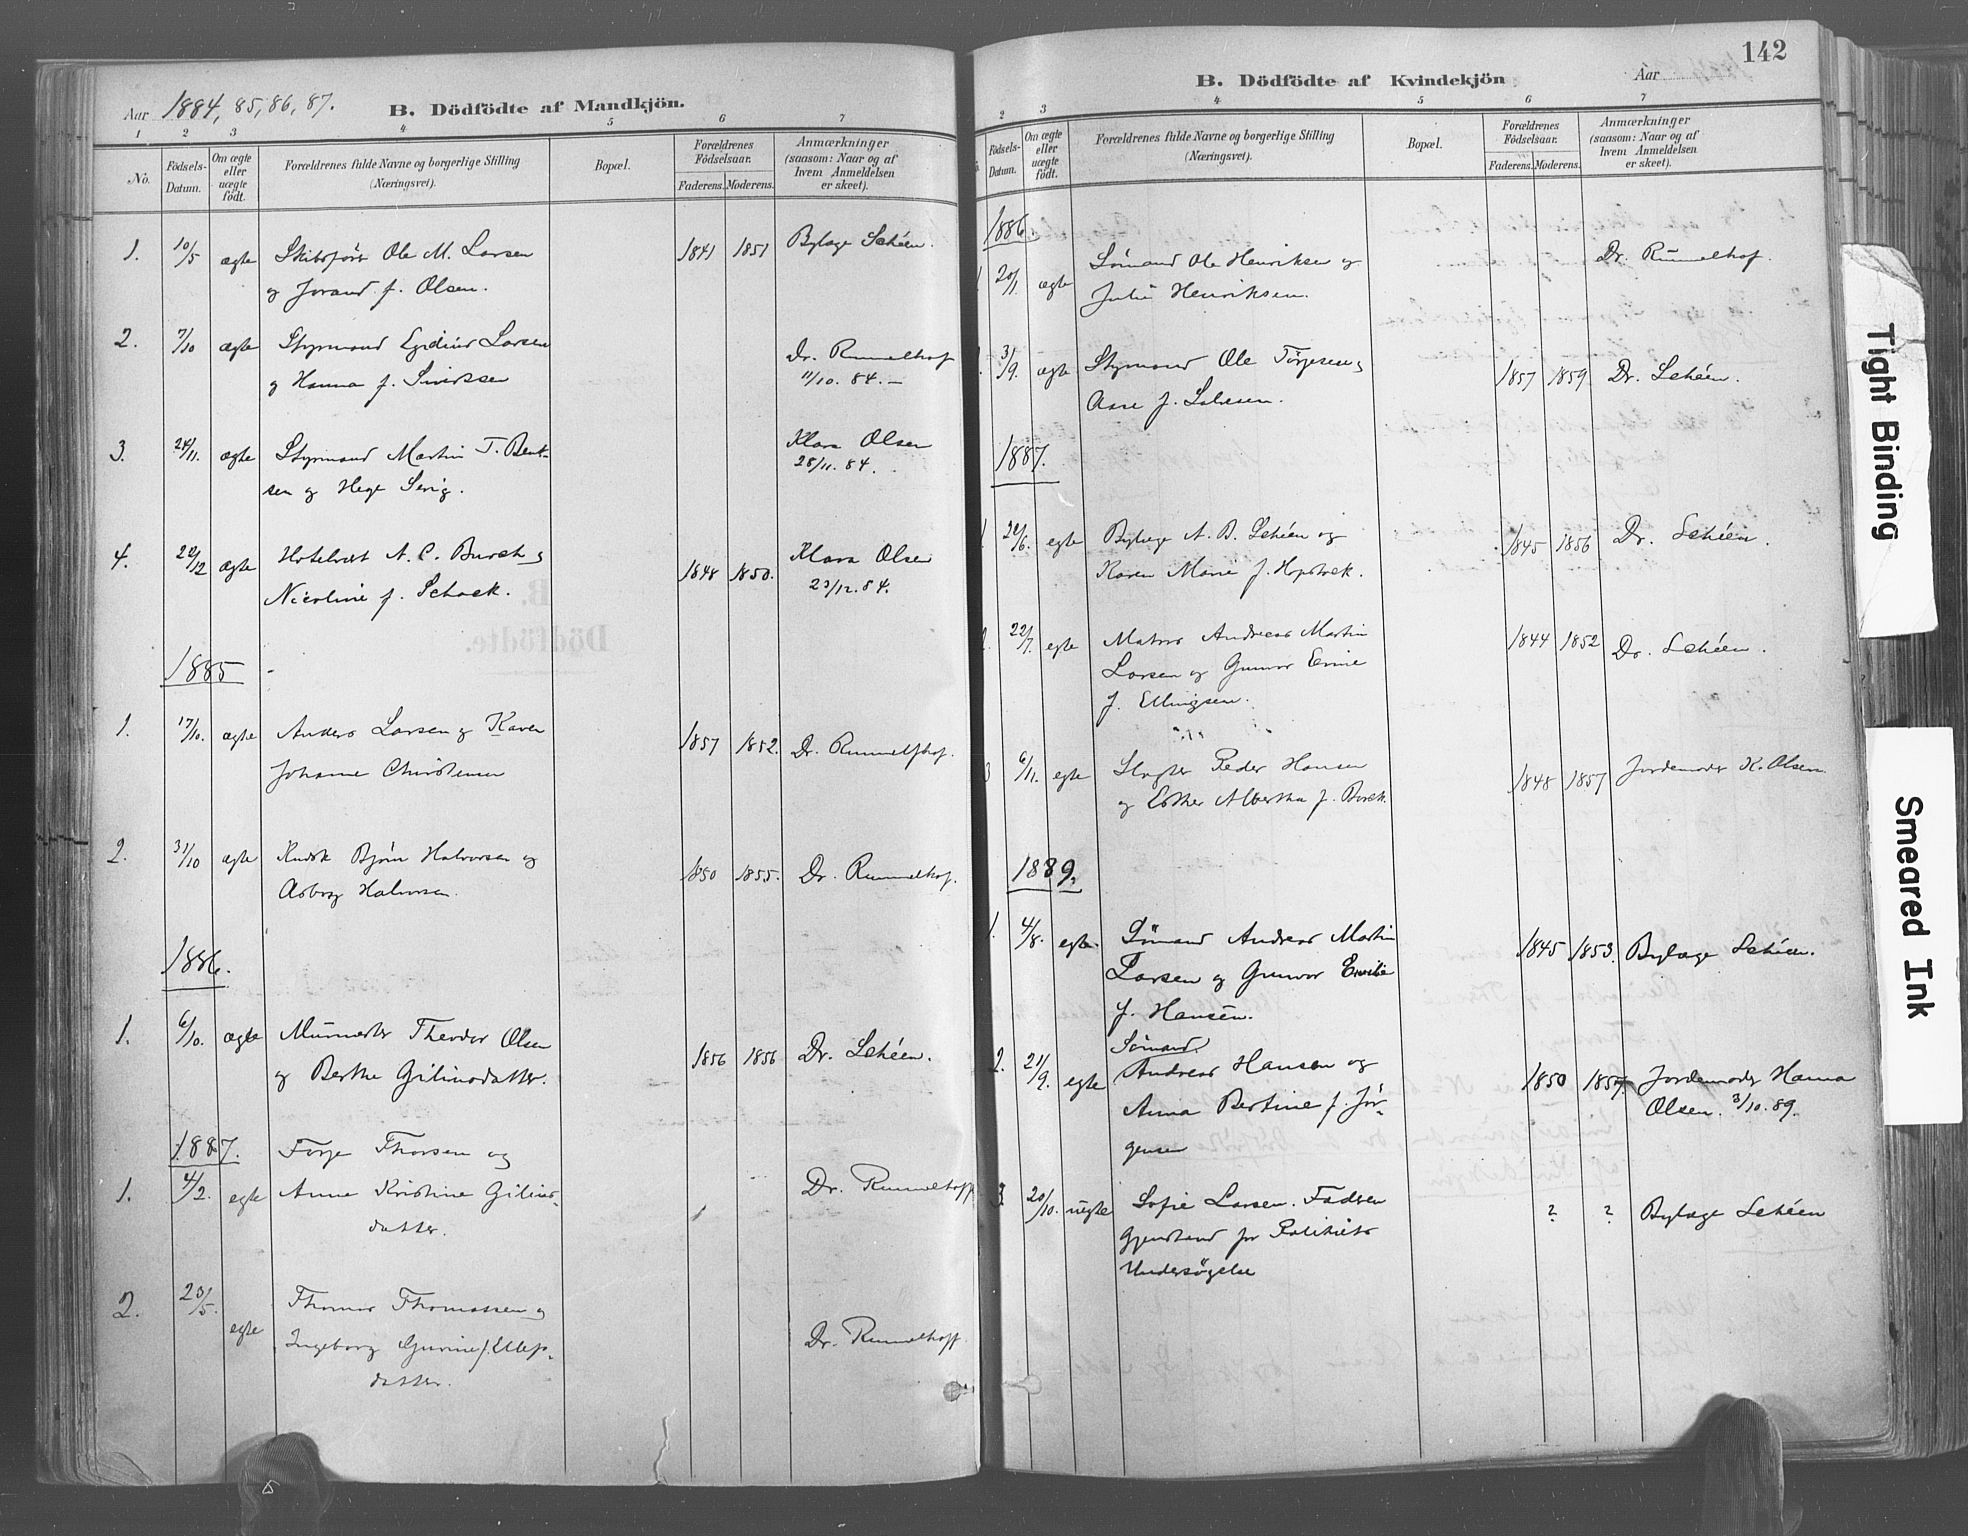 Aar 1884, 85, 86, 87.
B. Dödfödte af Mandkjön.
1 2 3 4 5 6 7
No.
Födsels-Datum.
Om ægte eller uægte födt.
Forældrenes fulde Navne og borgerlige Stilling (Næringsvei).
Bopæl.
Forældrenes Födselsaar.
Faderens. Moderens.
Anmærkninger (saasom: Naar og af hvem Anmeldelsen er skeet).
1. 10/5 ægte Skibsfører Ole M. Larsen 1841 1851 Bylæge Schéen.
og Jorand f. Olsen.
2. 7/10 ægte Styrmand Egidius Larsen Dr. Rummelhof
og Hanna f. Sivertsen 11/10. 84. —
3. 24/11. ægte Styrmand Martin T. Bent- Klara Olsen
sen og Hege 25/11. 84.
4. 22/12 ægte Hotelvært A. C. Burch og 1848 1850. Klara Olsen
Nicoline f. Schack. 23/12. 84.
1885
1. 17/10. ægte Anders Larsen og Karen 1857 1852. Dr. Rummelhof.
Johanne Christensen
2. 31/10 ægte Kudsk Bjørn Halvorsen og 1850 1855. Dr. Rummelhof.
Asborg Halvorsen.
1886.
1. 6/10. ægte Murmester Theodor Olsen 1856 1856 Dr. Schéen.
og Berthe Gilinsdatter.
1887. Torje Thorsen og
1. 4/2. egte Anne Kristine Gilins- Dr. Rummelhoff
datter.
2. 23/5. egte Thomas Thomassen og
Ingeborg Gurine f. Ellefs- Dr. Rummelhoff.
datter.
142
B. Dödfödte af Kvindekjön
Aar
2 3 4 5 6 7
Födsels-Datum.
Om ægte eller uægte födt.
Forældrenes fulde Navne og borgerlige Stilling (Næringsvei).
Bopæl.
Forældrenes Födselsaar.
Faderens. Moderens.
Anmærkninger (saasom: Naar og af hvem Anmeldelsen er skeet).
1886.
20/1. ægte Sømand Ole Henriksen og Dr. Rummelhof.
Julie Henriksen.
3/9. ægte Styrmand Ole Tørjesen og 1857 1859 Dr. Schéen.
Aase f. Salvesen.
1887.
1. 20/6. egte Bylæge A. B. Schéen og 1845 1856 Dr. Schéen.
Karen Marie f. Hopstock.
2. 22/7. egte Matros Andreas Martin 1844 1852 Dr. Schéen.
Larsen og Gunvor Emie
f. Ellingsen.
3 6/11. egte Slagter Peder Hansen 1848 1857 Jordemoder K. Olsen.
og Esther Albertha f. Burck.
1889.
1. 4/8. egte. Sömand Andreas Martin 1845 1853. Bylæge Schéen.
Larsen og Gunvor Emilie
f. Hansen.
Sömand.
2. 21/9. egte Andreas Hansen og 1850 1857 Jordemoder Hanna
Anna Bertine f. Jör- Olsen. 3/10. 89.
gensen
3. 20/10. uegte Sofie Larsen. Faderen ? ? Bylæge Schéen
Gjenstand for Politiets
Undersøgelse
Tight Binding
Smeared Ink